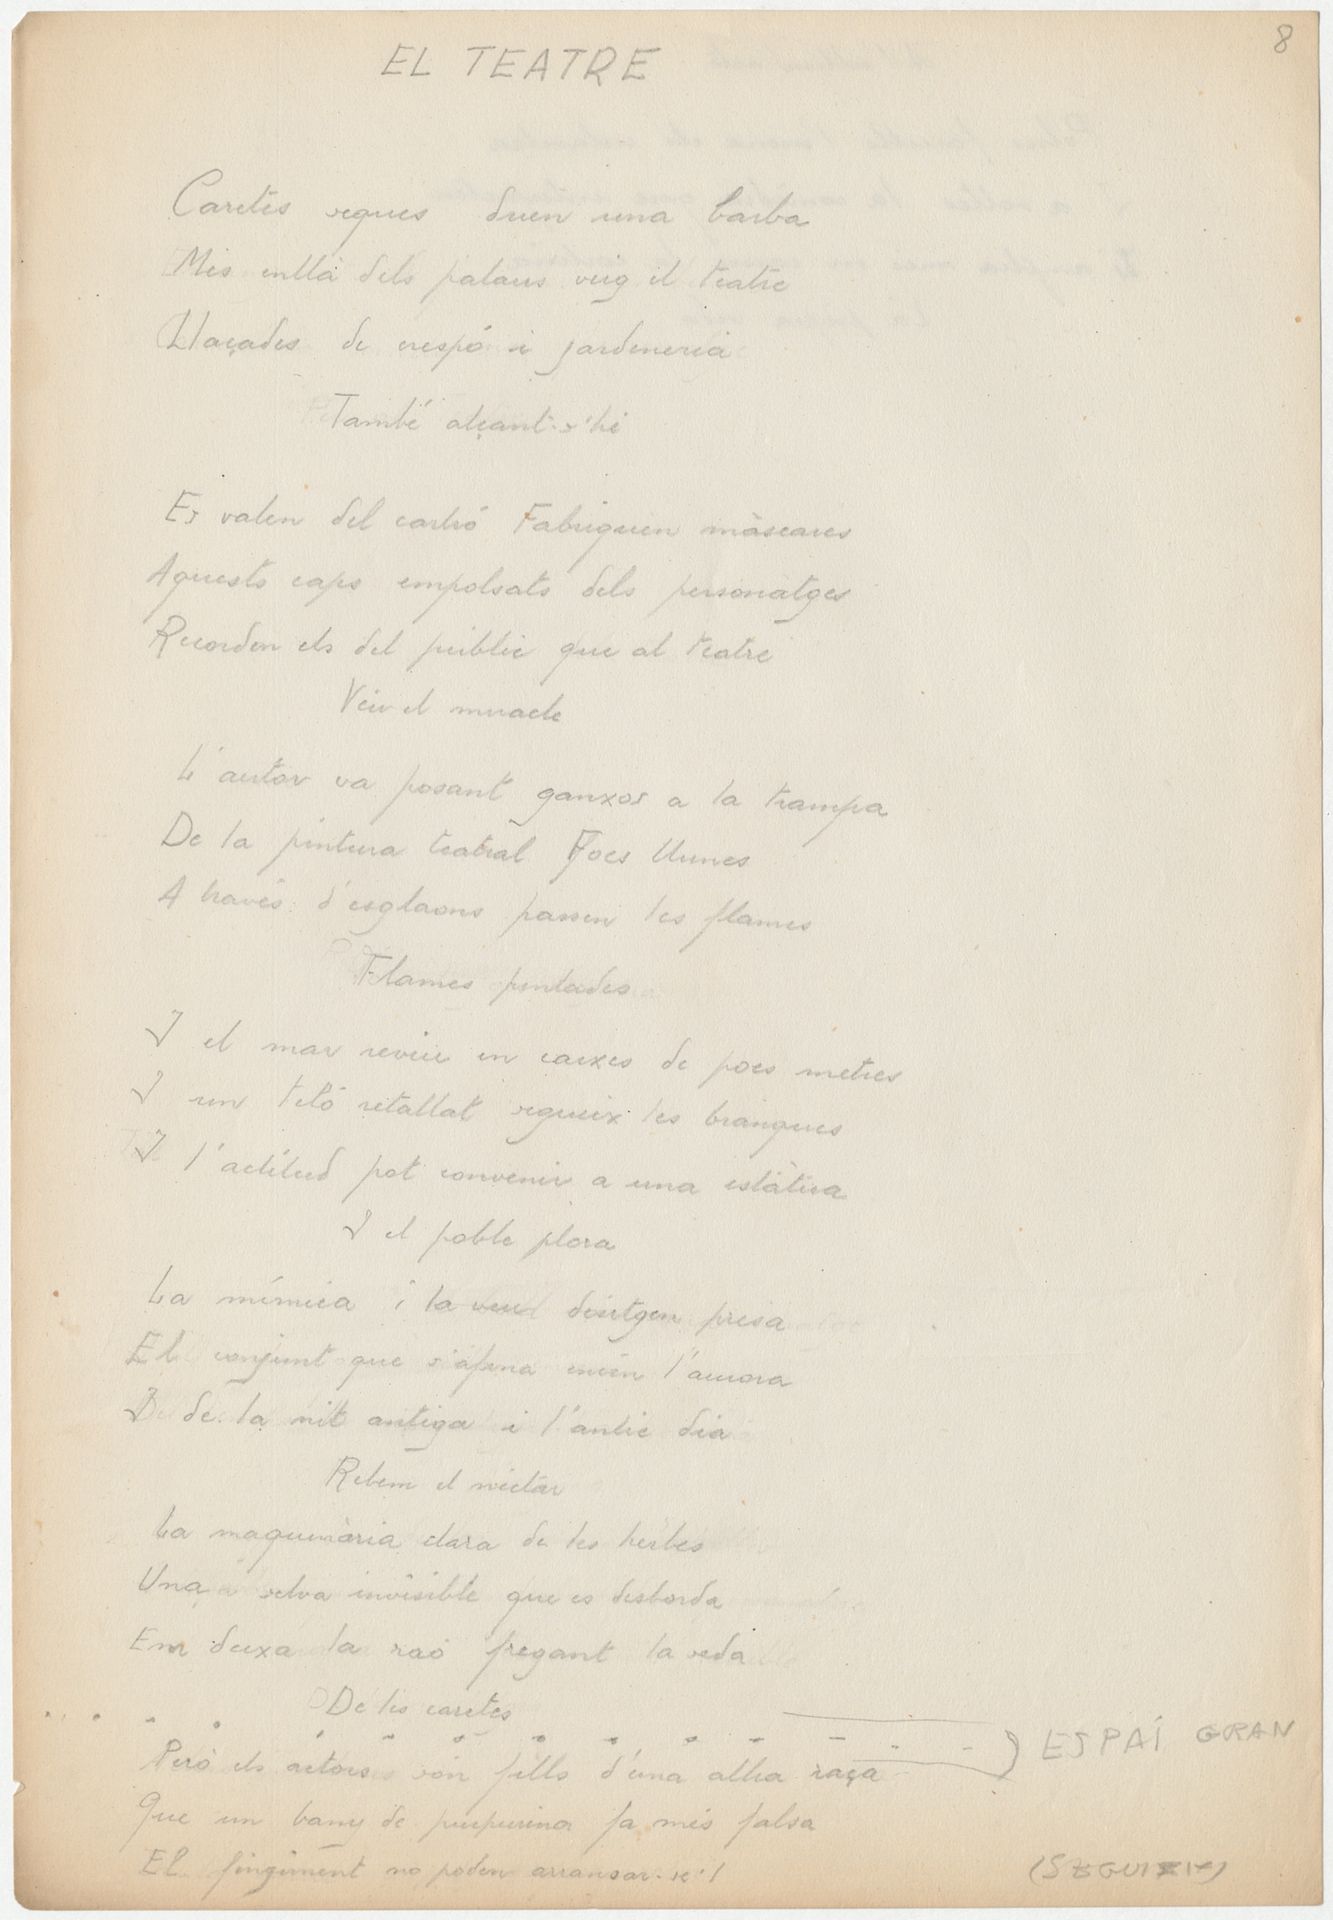 8
EL TEATRE
Caretes segues duen una barba
Més enllà dels palaus veig el teatre
Llaçades de crespó i jardeneria
També alçant-s'hi
Es valen del cartró Fabriquen màscares
Aquests caps empolsats dels personatges
Recorden els del públic que al teatre
Veu el miracle
L'autor va posant ganxos a la trampa
De la pintura teatral Focs llunes
A través d'esglaons passen les flames
Flames pintades
I el mar reviu en caixes de pocs metres
I un teló retallat segueix les branques
I l'actitud pot convenir a una estàtua
I el poble plora
La mímica i la veu desitgen presa
El conjunt que s'afina encén l'aurora
I de la nit antiga i l'antic dia
Rebem el nèctar
La maquinària clara de les herbes
Una selva invisible que es desborda
Em deixa la raó fregant la seda
De les caretes
ESPAÍ GRAN
Però els actors són fills d'una altra raça
Que un bany de purpurina fa més falsa
El fingiment no poden arrancar-se'l
(SEGUEIX)